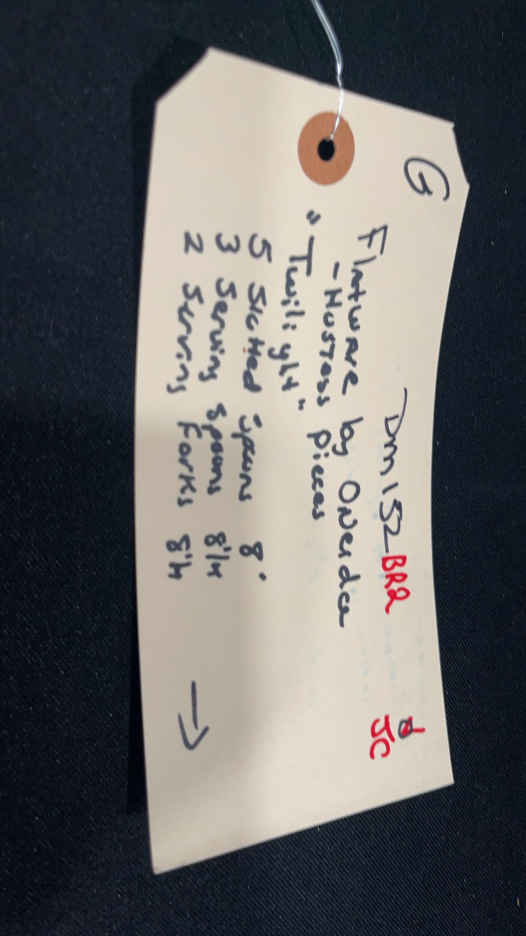 G
Dm152 BR2 JC
Flatware by Oneida
- Hostess Pieces
"Twilight"
5 Slotted Spoons 8"
3 Serving Spoons 8 1/4
2 Serving Forks 8 1/4
→